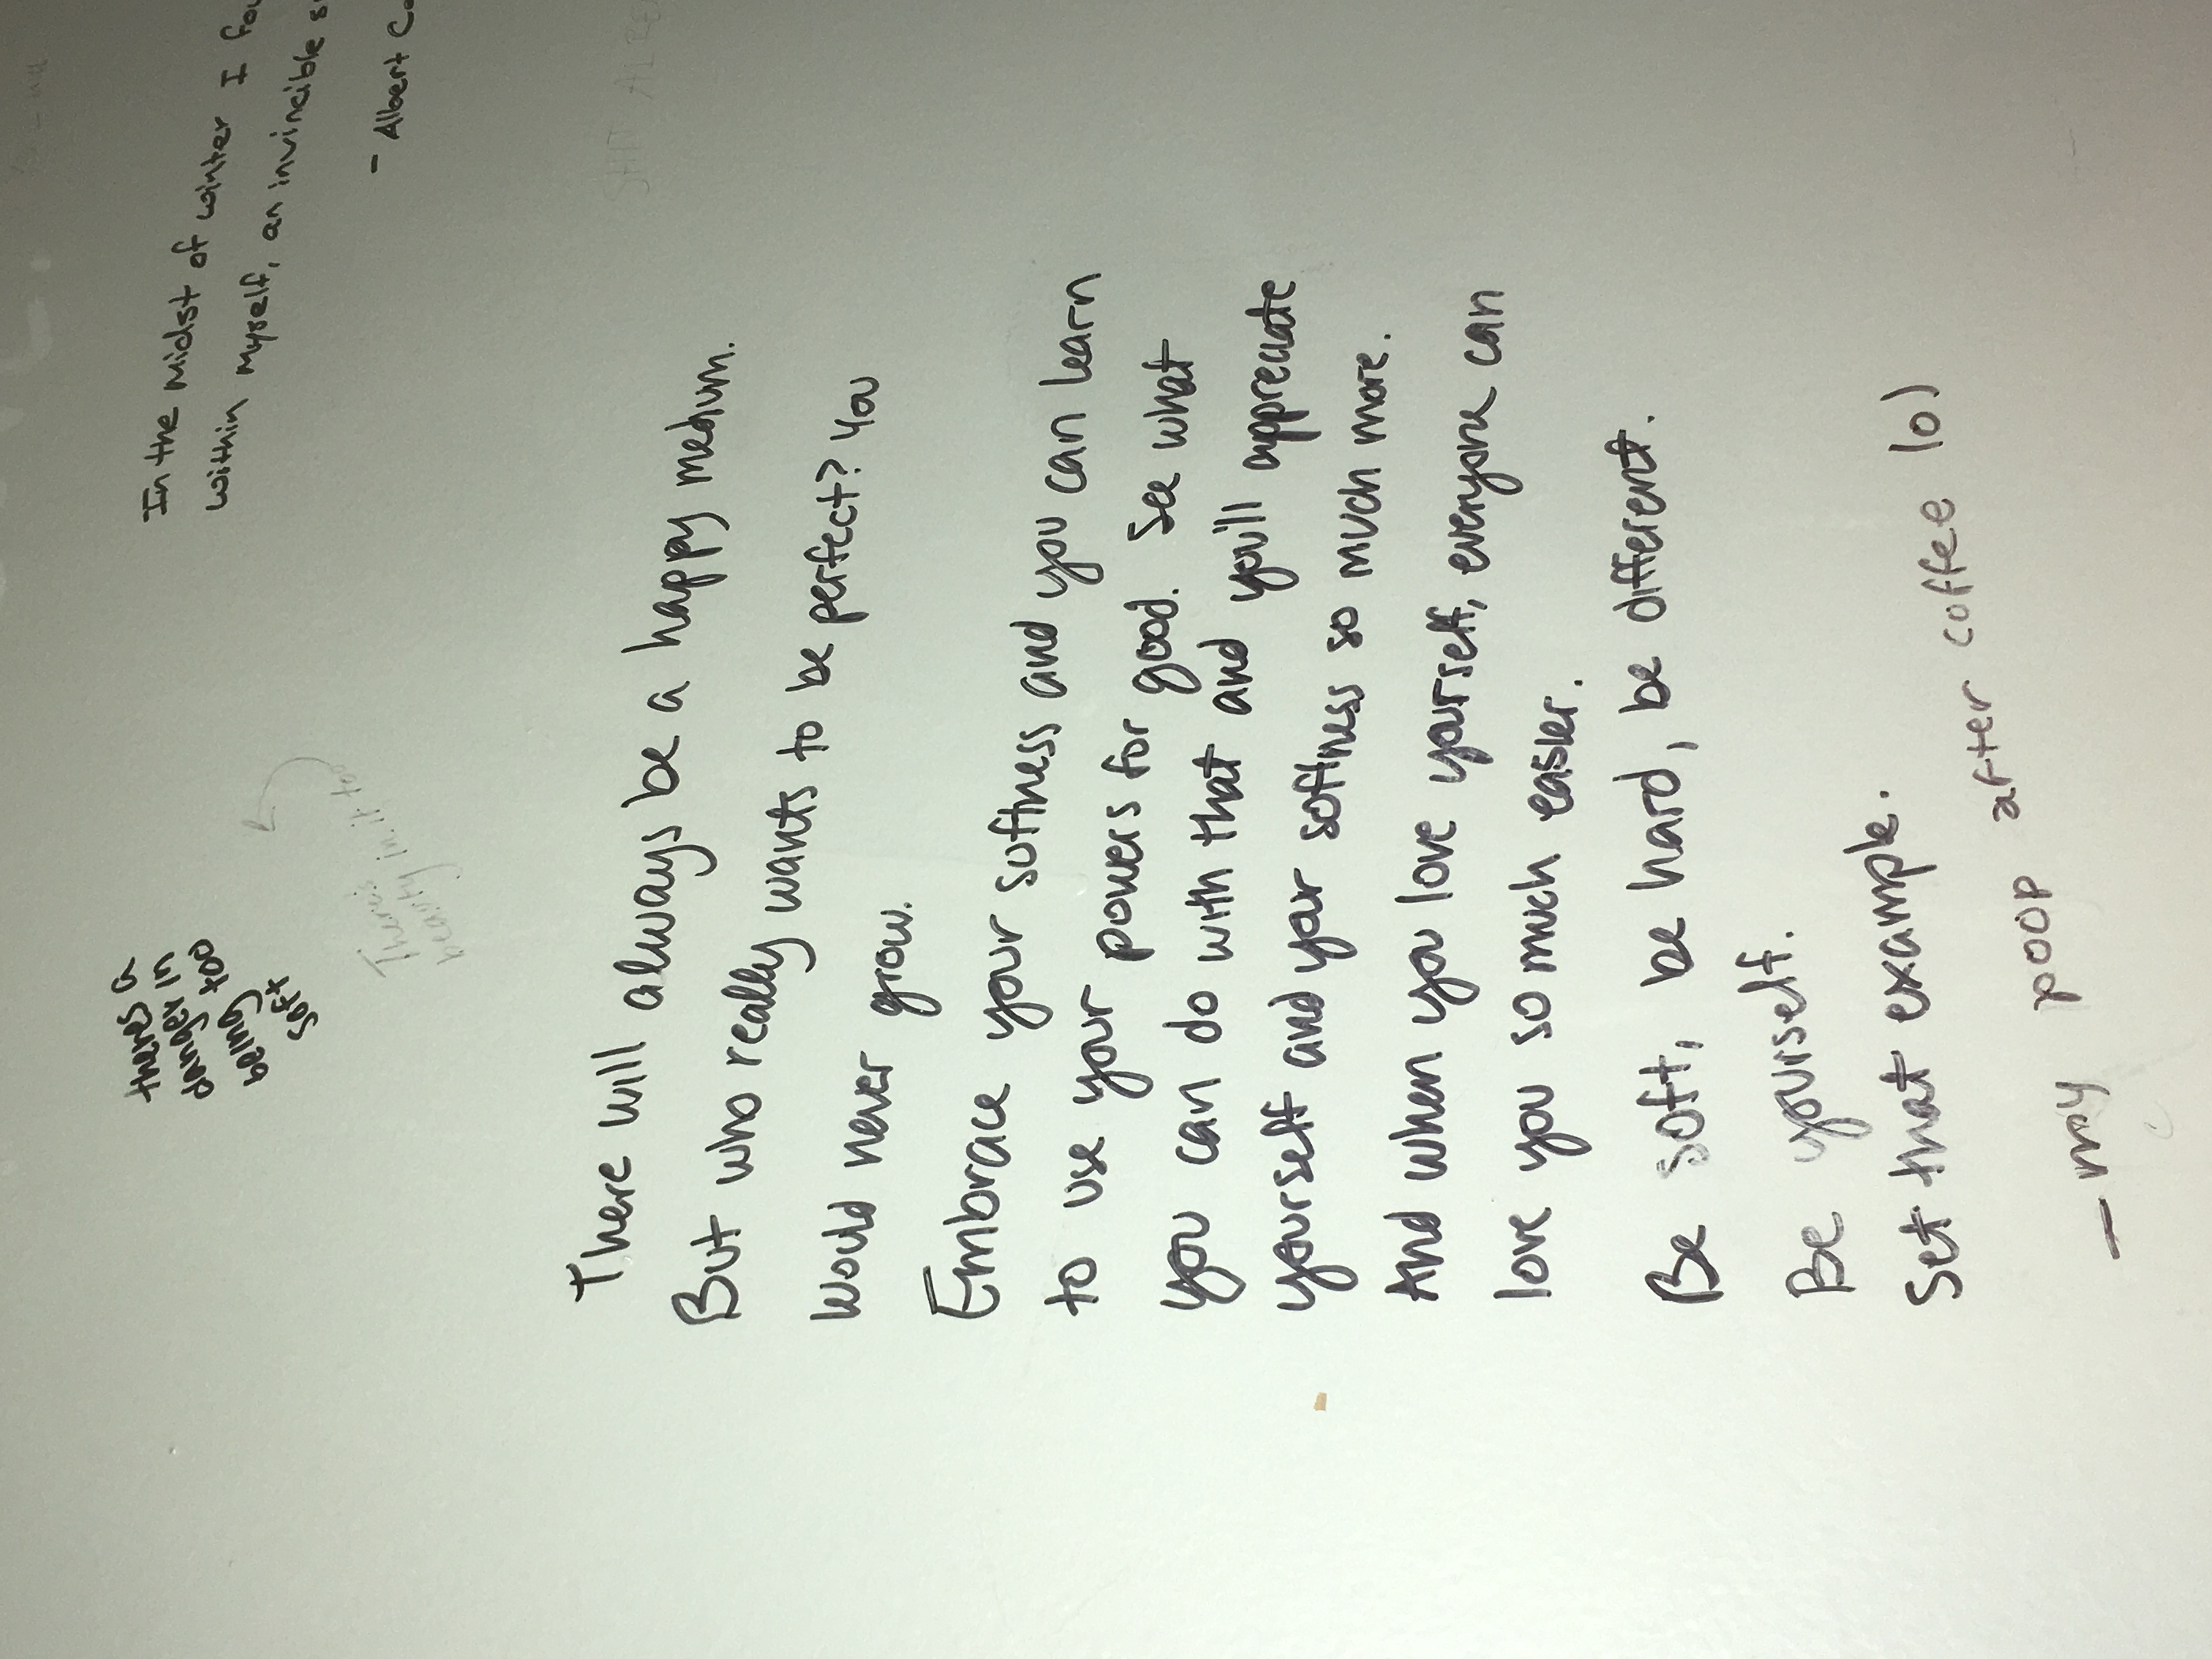 In the midst of winter I
within myself, an invincible
- Albert
there's a
danger in
being too
soft
There's
beauty in it too
There will always be a happy medium.
But who really wants to be perfect? You
would never grow.
Embrace your softness and you can learn
to use your powers for good. See what
you can do with that and you'll appreciate
yourself and your softness so much more.
And when you love yourself, everyone can
love you so much easier.
Be soft, be hard, be different.
Be yourself.
Set that example.
- my poop after coffee lol